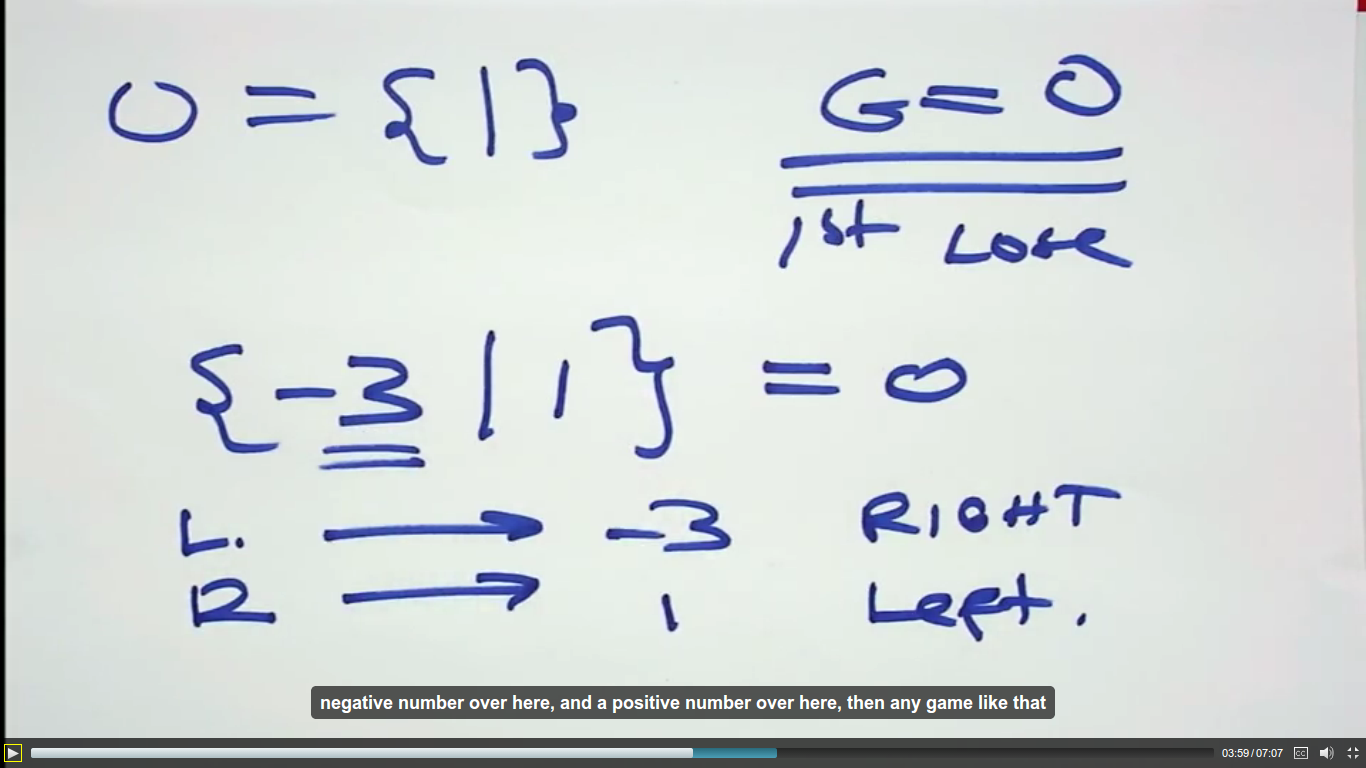 0 = { | } G = 0
1st Lose
{ -3 | 1 } = 0
L. → -3 RIGHT
R → 1 Left.
negative number over here, and a positive number over here, then any game like that
03:59/07:07 CC